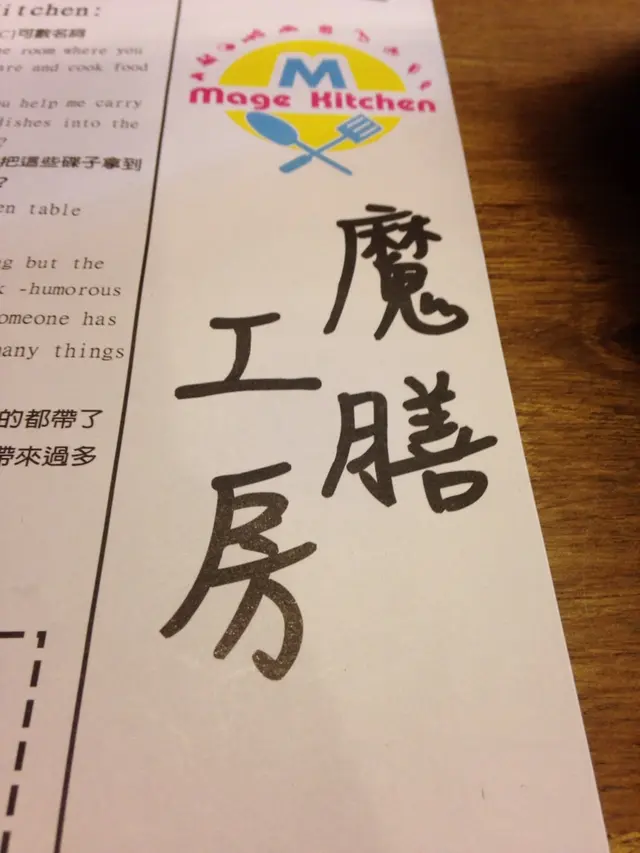 itchen:
C)可數名詞
e room where you
are and cook food
u help me carry
dishes into the
?
把這些碟子拿到
?
en table
g but the
k -humorous
omeone has
many things
的都帶了
帶來過多
M
Mage Kitchen
魔膳
工房